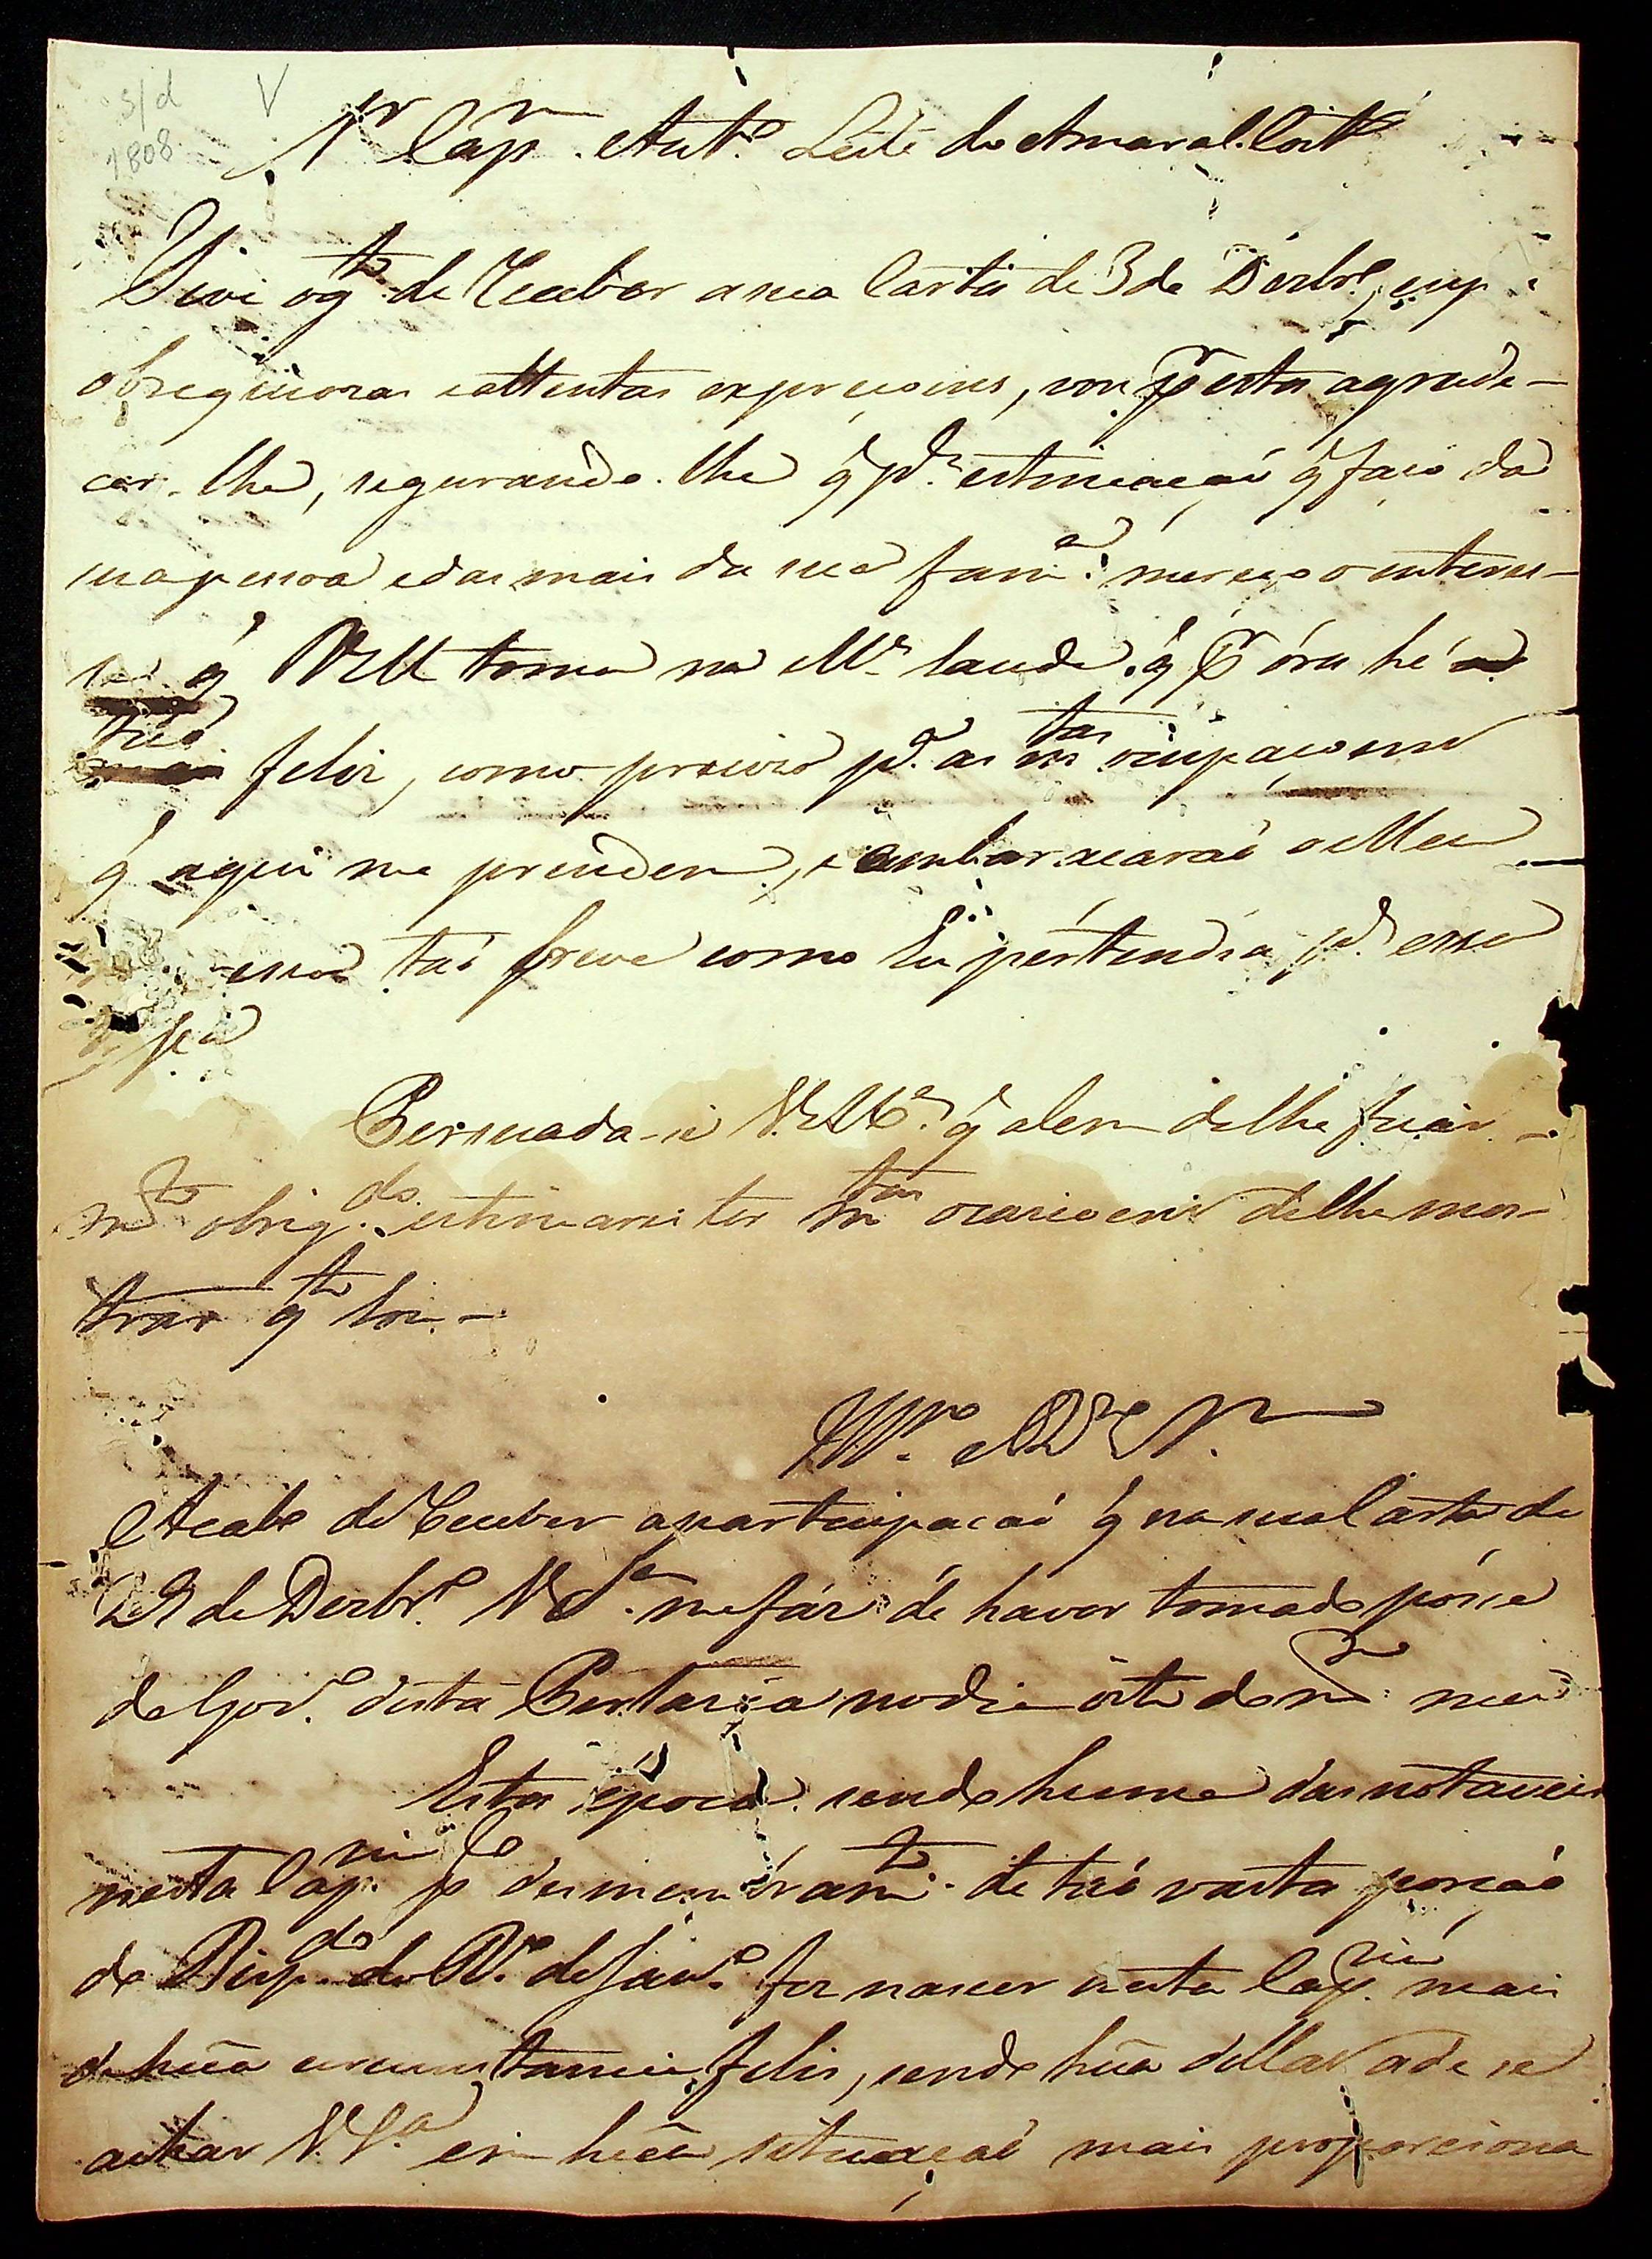 s/d V
1808
Sr Capm. Antº Leite do Amaral Coitº
Tive o gto de Receber a sua Carta de 3 de Dezbrº, cuj
obsequiozas e attentas expreçoens, vou pr esta agrade-
cer-lhe, segurando-lhe q pla estimaçaó q faço da
sua pessoa e das mais da sua famª. mereço o interes-
se q VM toma na Mª saude. q pr óra hé
taó felis, como preciso pª. as mtas ocupaçoens
q aqui me prendem, e embarasaraó o Meu
taó breve como Eu pertendia pª. esse
Persuada-se V.Mce. q alem de lhe ficar
mto obrigdo. estimarei ter mtas ocasioens de lhe mos-
trar qto sou -
Acabo de Receber a participaçaó q na sua Carta de
29 de Dezbrº. V Sª. me fáz de haver tomado pósse
do Govº. desta Capitania no dia oito do mo. mes
Esta época sendo huma das notaveis
nesta Capnia pº desmembramto. de taó vasta porçaó
do Bispdo. do Rº. de Janrº. fez nascer nesta Capnia mais
de huã circunstancia felis, sendo huã dellas a de se
achar V. Sª em huã situaçaó mais proporciona